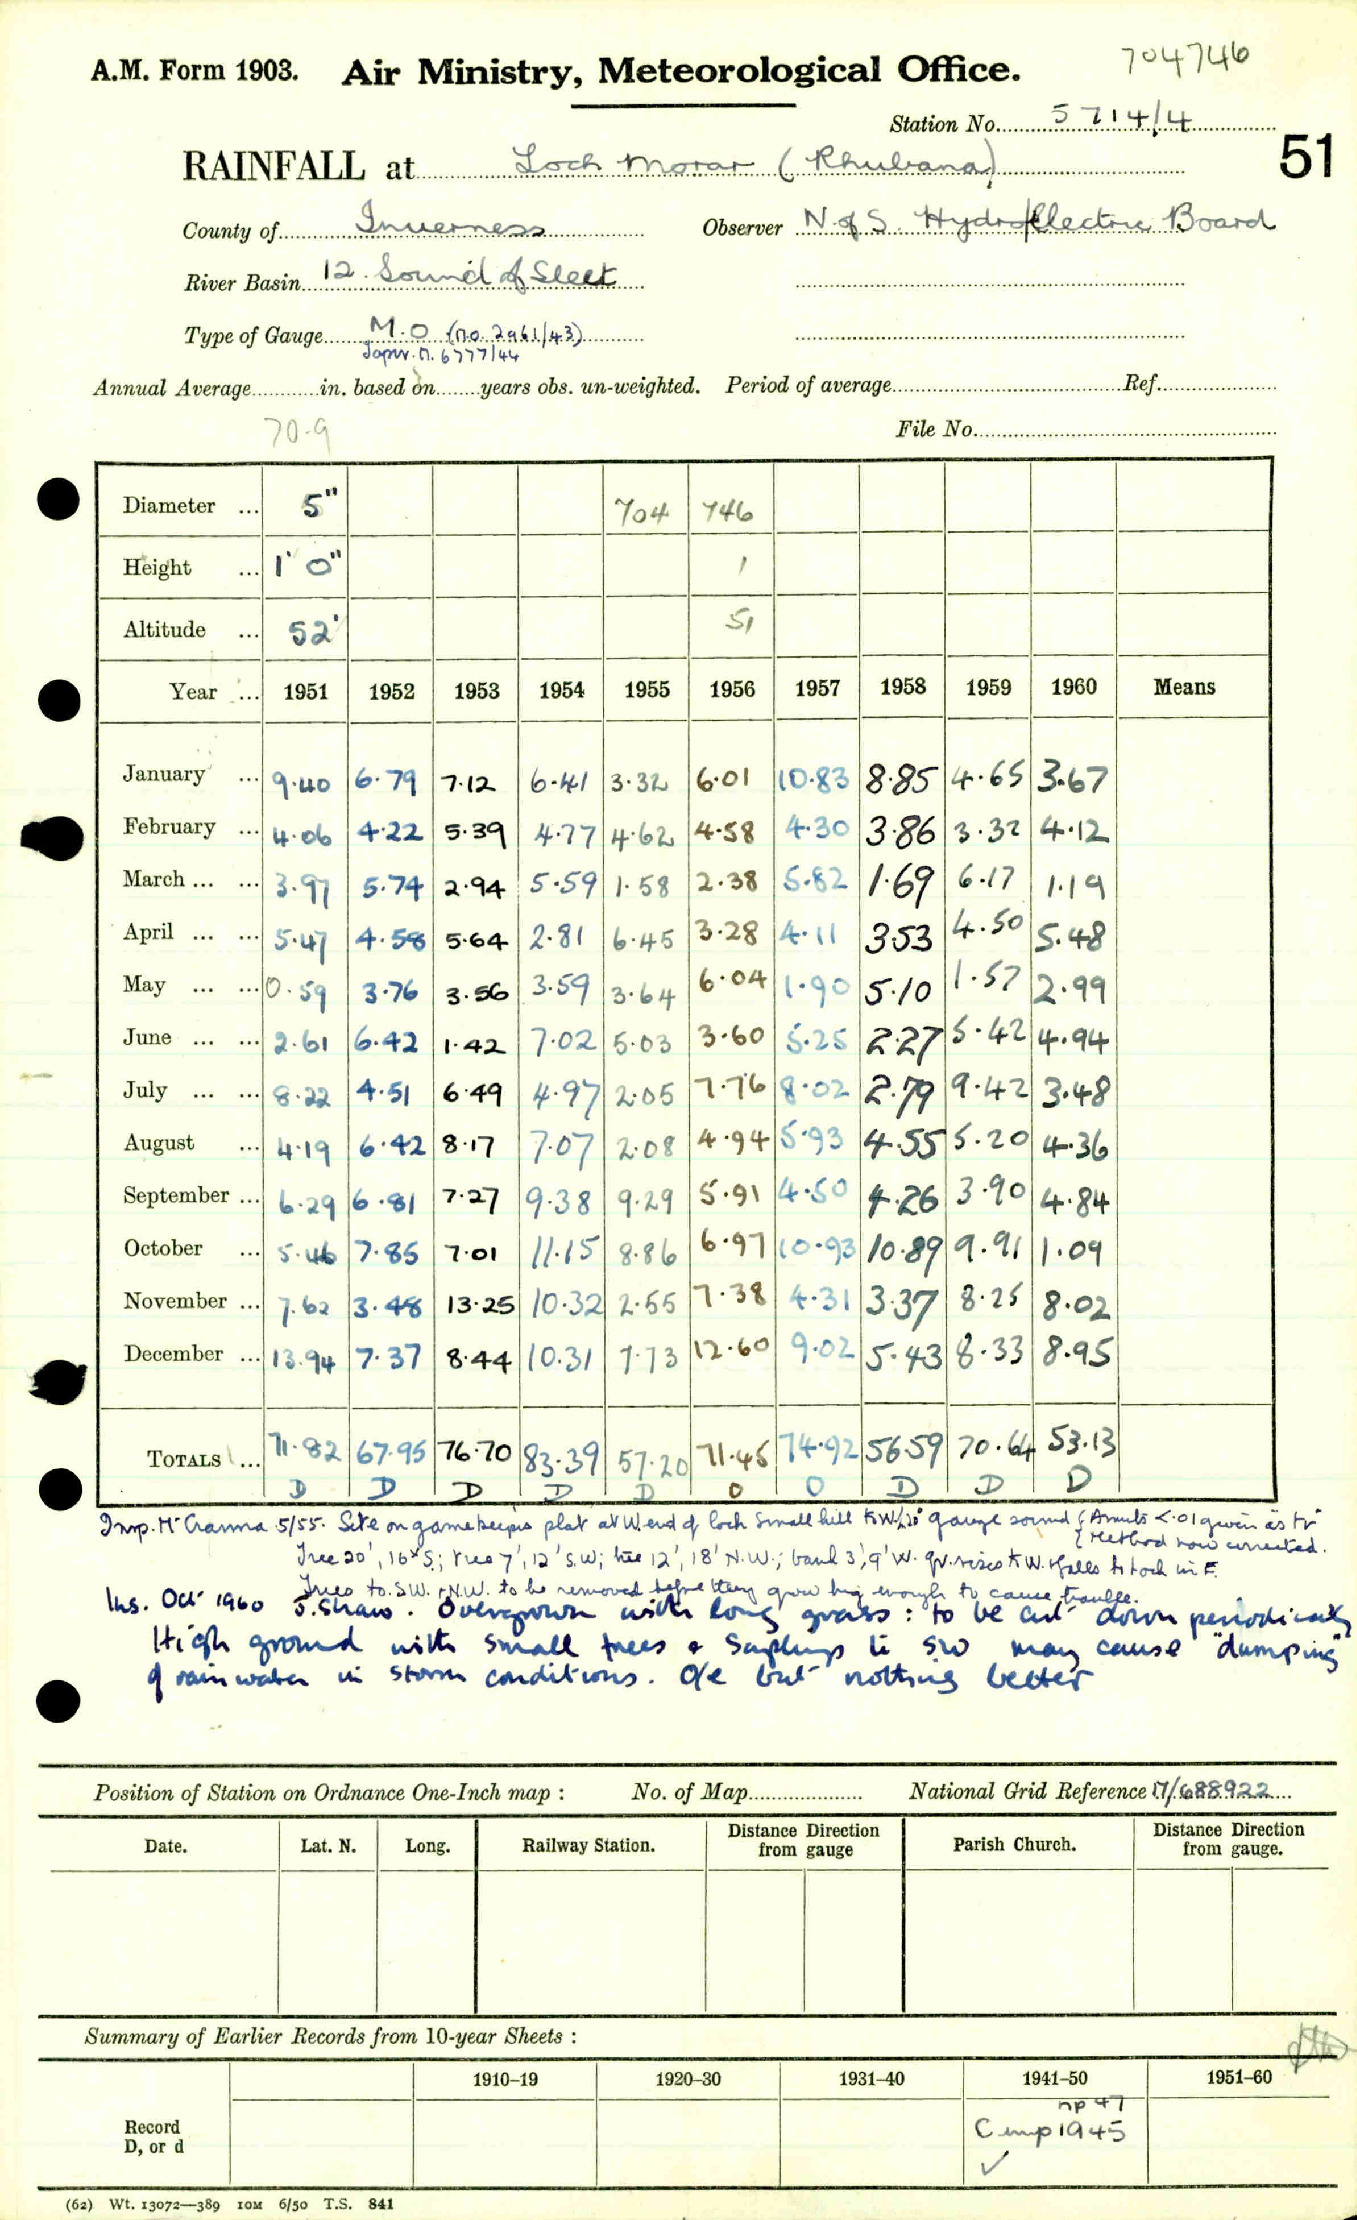 704746
A.M. Form 1903. Air Ministry, Meteorological Office.
Station No. 5714/4
51
RAINFALL at Loch Morar (Rhubana)
County of Inverness Observer N. of S. Hydro/Electric Board
River Basin 12. Sound of Sleet
Type of Gauge M.O (no. 2961/43)
6777/44
Annual Average in. based on years obs. un-weighted. Period of average Ref.
70.9
File No.
Diameter ... 5" 704 746
Height ... 1' 0" 1
Altitude ... 52' 51
Year ... 1951 1952 1953 1954 1955 1956 1957 1958 1959 1960 Means
January ... 9.40 6.79 7.12 6.41 3.32 6.01 10.83 8.85 4.65 3.67
February ... 4.06 4.22 5.39 4.77 4.62 4.58 4.30 3.86 3.32 4.12
March ... ... 3.97 5.74 2.94 5.59 1.58 2.38 5.82 1.69 6.17 1.19
April ... ... 5.47 4.58 5.64 2.81 6.45 3.28 4.11 353 4.50 5.48
May ... ... 0.59 3.76 3.56 3.59 3.64 6.04 1.90 5.10 1.57 2.99
June ... ... 2.61 6.42 1.42 7.02 5.03 3.60 5.25 2.27 5.42 4.94
July ... ... 8.22 4.51 6.49 4.97 2.05 7.76 8.02 2.79 9.42 3.48
August ... 4.19 6.42 8.17 7.07 2.08 4.94 5.93 4.55 5.20 4.36
September ... 6.29 6.81 7.27 9.38 9.29 5.91 4.50 4.26 3.90 4.84
October ... 5.46 7.85 7.01 11.15 8.86 6.97 10.93 10.89 9.91 1.09
November ... 7.62 3.48 13.25 10.32 2.55 7.38 4.31 3.37 8.25 8.02
December ... 13.94 7.37 8.44 10.31 7.73 12.60 9.02 5.43 8.33 8.95
TOTALS ... 71.82 67.95 76.70 83.39 57.20 71.45 74.92 56.59 70.64 53.13
D D D D D O O D D D
Insp. 5/55. Site on gamekeepers plot at W. end of loch Small hill to W/20° gauge sound { Amnts <.01 given as tr
{ Method now corrected.
Tree 20', 16' S; tree 7', 12' S.W; tree 12', 18' N.W.; bank 3', 9' W. gr. rises to W. & falls to loch in E.
Trees to S.W. & N.W. to be removed before they grow big enough to cause trouble.
Ins. Oct 1960 J. Shaw. Overgrown with long grass: to be cut down periodically
High ground with small trees & saplings to SW may cause "dumping"
of rain water in storm conditions. O/e but nothing better
Position of Station on Ordnance One-Inch map : No. of Map National Grid Reference 17/688922
Date. Lat. N. Long. Railway Station. Distance from gauge Direction Parish Church. Distance from gauge. Direction
Summary of Earlier Records from 10-year Sheets :
1910–19 1920–30 1931–40 1941–50 1951–60
Record
D, or d
np 47
Cmp 1945
✓
(62) Wt. 13072—389 10M 6/50 T.S. 841